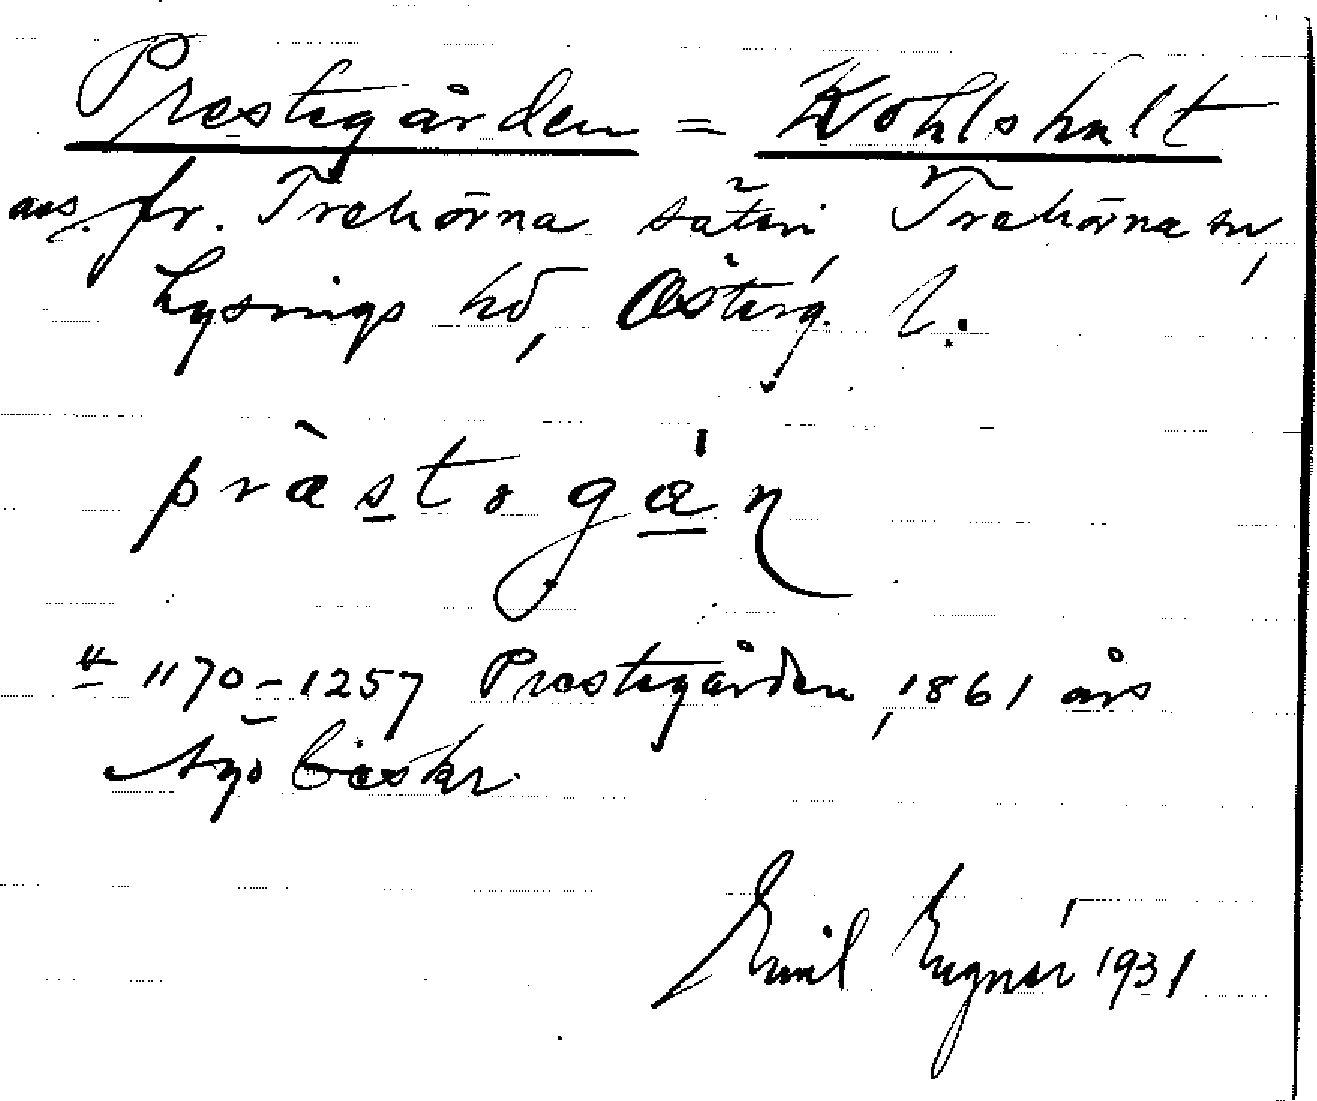 Prestegården = Kohlshult
avs. fr. Trehörna säteri Trehörna sn,
Lysings hd, Österg. l.
pràstogån
# 1170–1257 Prestegården, 1861 års
beskr
Emil 1931